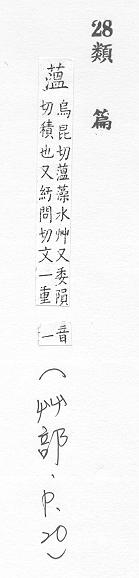 28類 篇
薀 烏昆切薀藻水艸又委隕
切積也又紆問切文一重
音一
（艸部．P．20）